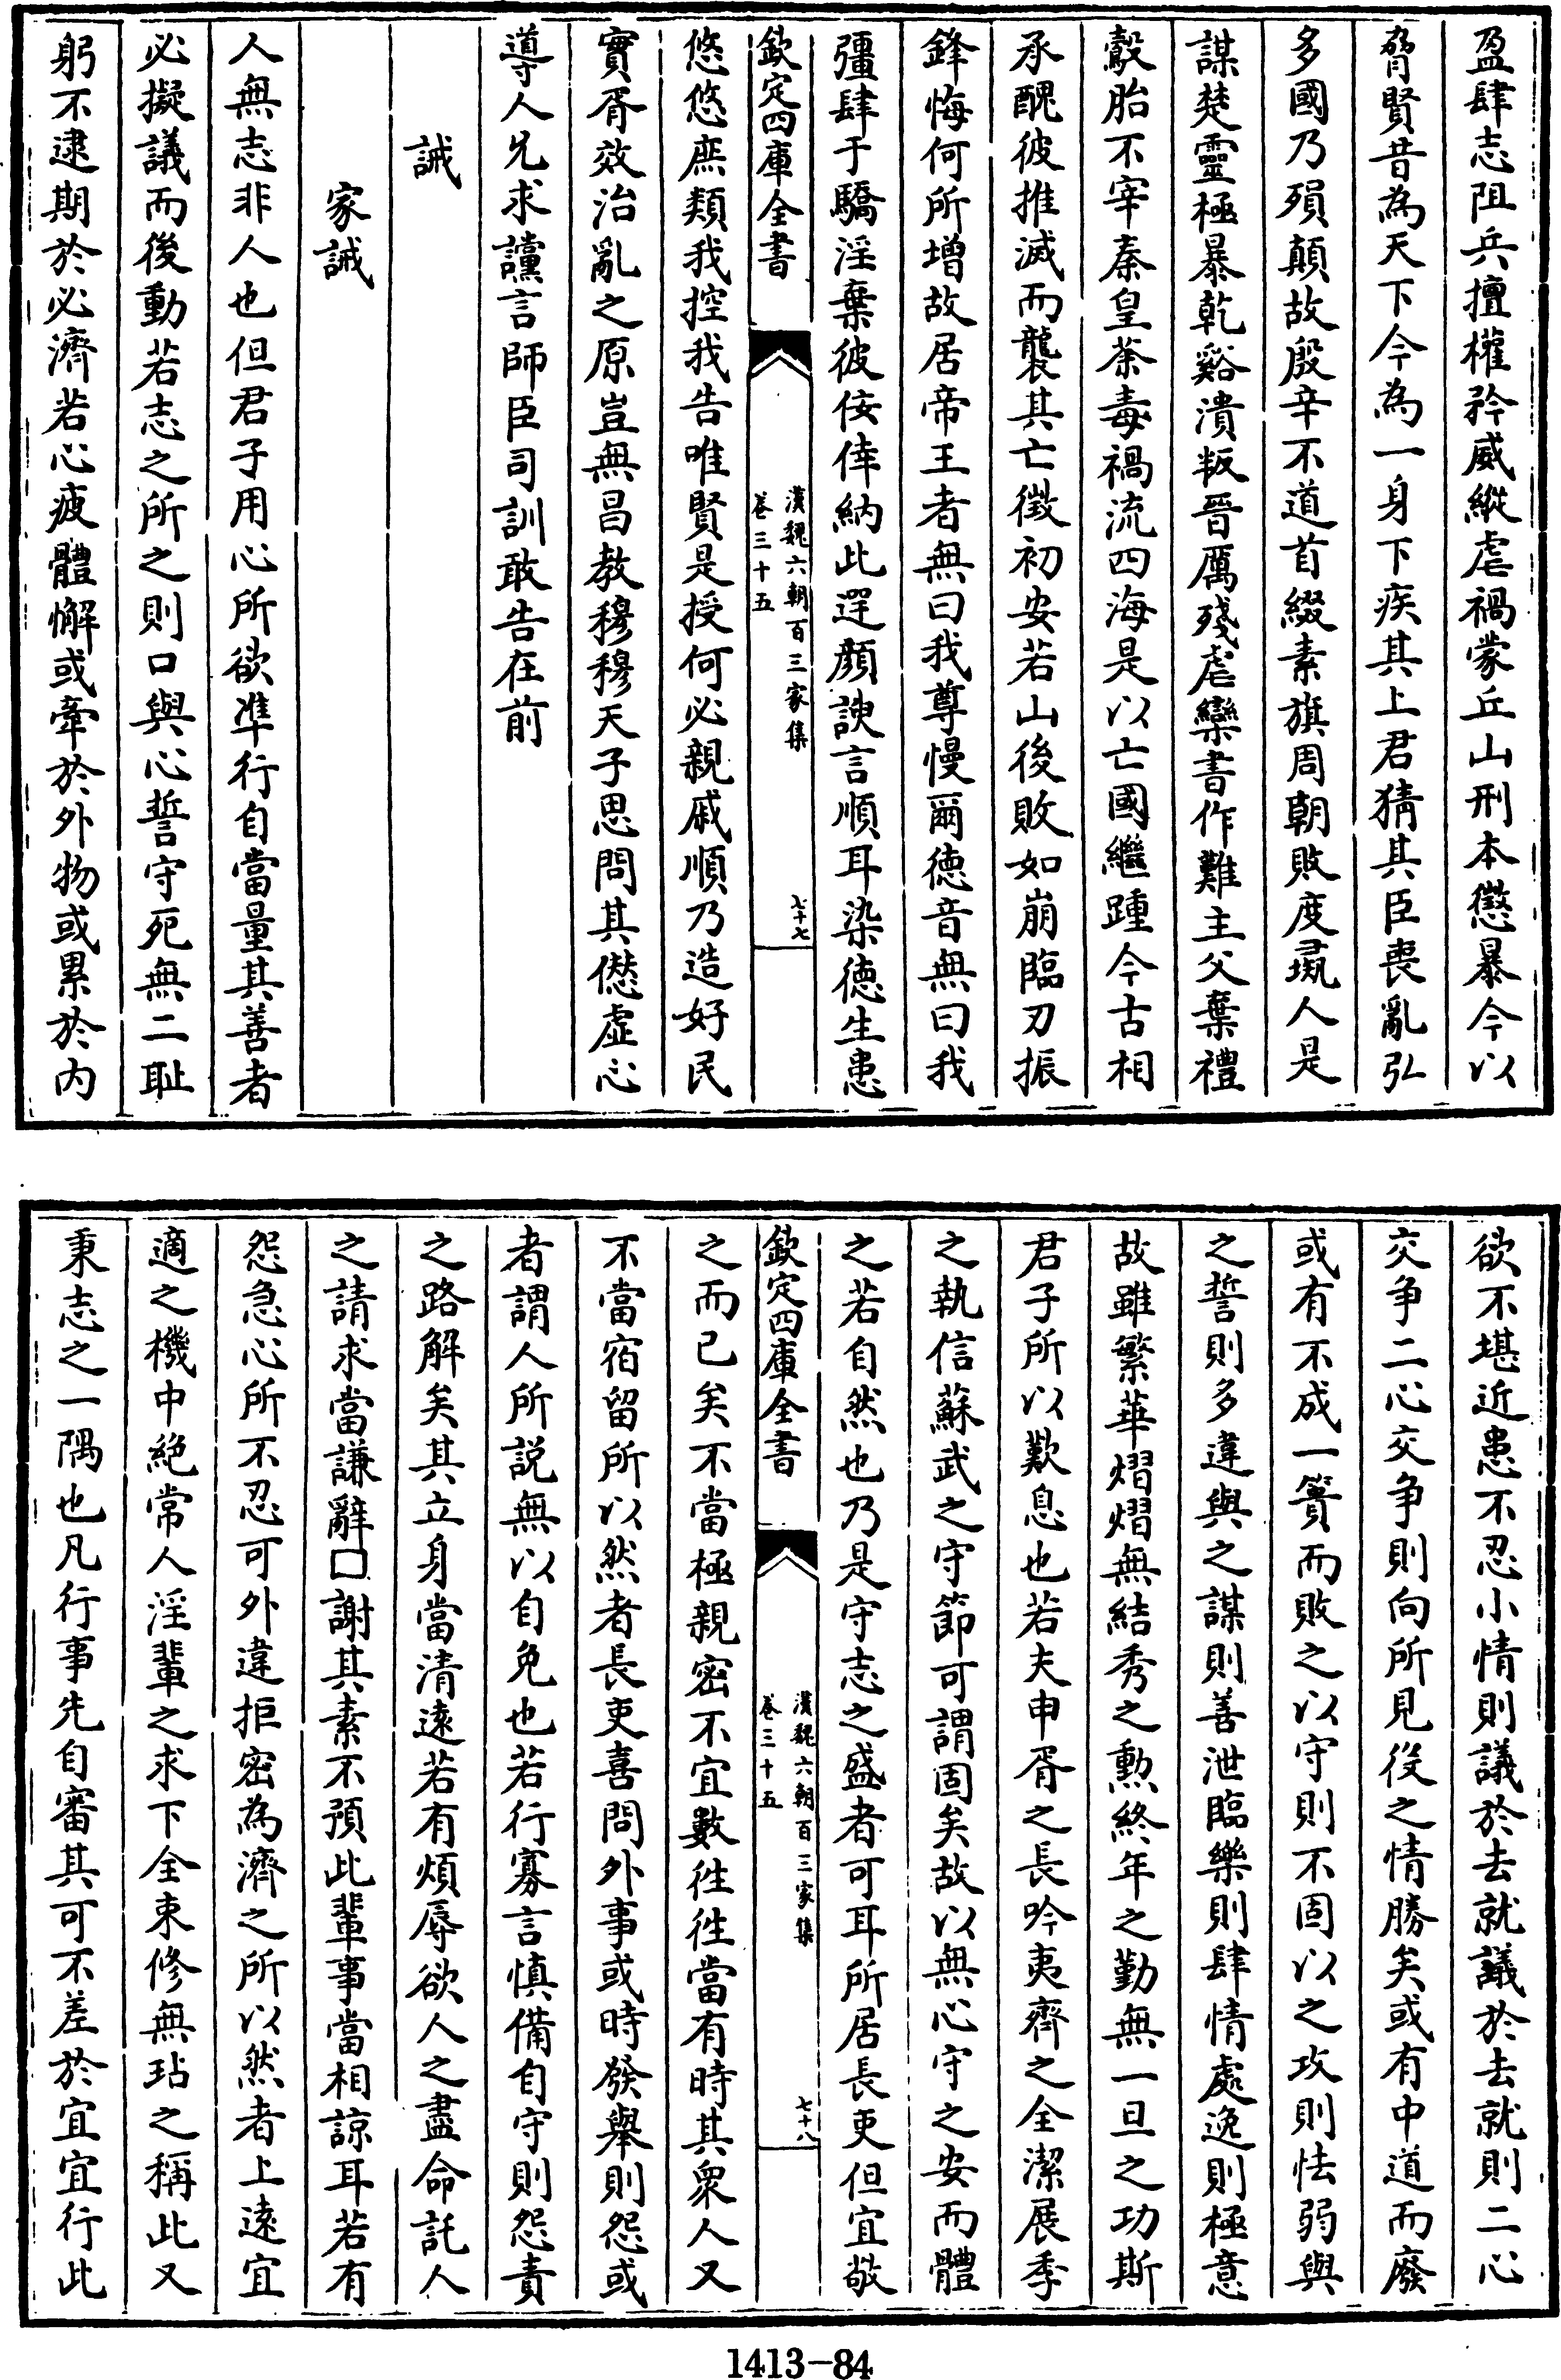 盈肆志阻兵擅權矜威縱虐禍蒙丘山刑本懲暴今以
脅賢昔為天下今為一身下疾其上君猜其臣喪亂弘
多國乃殞顛故殷辛不道首綴素旗周朝敗度彘人是
謀楚靈極暴乾谿潰叛晉厲殘虐欒書作難主父棄禮
鷇胎不宰秦皇荼毒禍流四海是以亡國繼踵今古相
承醜彼推滅而襲其亡徵初安若山後敗如崩臨刃振
鋒悔何所增故居帝王者無曰我尊慢爾徳音無曰我
彊肆于驕淫棄彼佞倖納此遻顔諛言順耳染徳生患
欽定四庫全書
漢魏六朝百三家集
卷三十五
七十七
悠悠庶類我控我告唯賢是授何必親戚順乃造好民
實胥效治亂之原豈無昌教穆穆天子思問其愆虚心
導人允求讜言師臣司訓敢告在前
誡
家誡
人無志非人也但君子用心所欲準行自當量其善者
必擬議而後動若志之所之則口與心誓守死無二耻
躬不逮期於必濟若心疲體懈或牽於外物或累於内
欲不堪近患不忍小情則議於去就議於去就則二心
交争二心交争則向所見役之情勝矣或有中道而廢
或有不成一簣而敗之以守則不固以之攻則怯弱與
之誓則多違與之謀則善泄臨樂則肆情處逸則極意
故雖繁華熠熠無結秀之勲終年之勤無一旦之功斯
君子所以歎息也若夫申胥之長吟夷齊之全潔展季
之執信蘇武之守節可謂固矣故以無心守之安而體
之若自然也乃是守志之盛者可耳所居長吏但宜敬
欽定四庫全書
漢魏六朝百三家集
卷三十五
七十八
之而已矣不當極親密不宜數徃徃當有時其衆人又
不當宿留所以然者長吏喜問外事或時發舉則怨或
者謂人所説無以自免也若行寡言慎備自守則怨責
之路解矣其立身當清逺若有煩辱欲人之盡命託人
之請求當謙辭口謝其素不預此輩事當相諒耳若有
怨急心所不忍可外違拒密為濟之所以然者上逺宜
適之機中絶常人淫輩之求下全束修無玷之稱此又
秉志之一隅也凡行事先自審其可不差於宜宜行此
1413-84